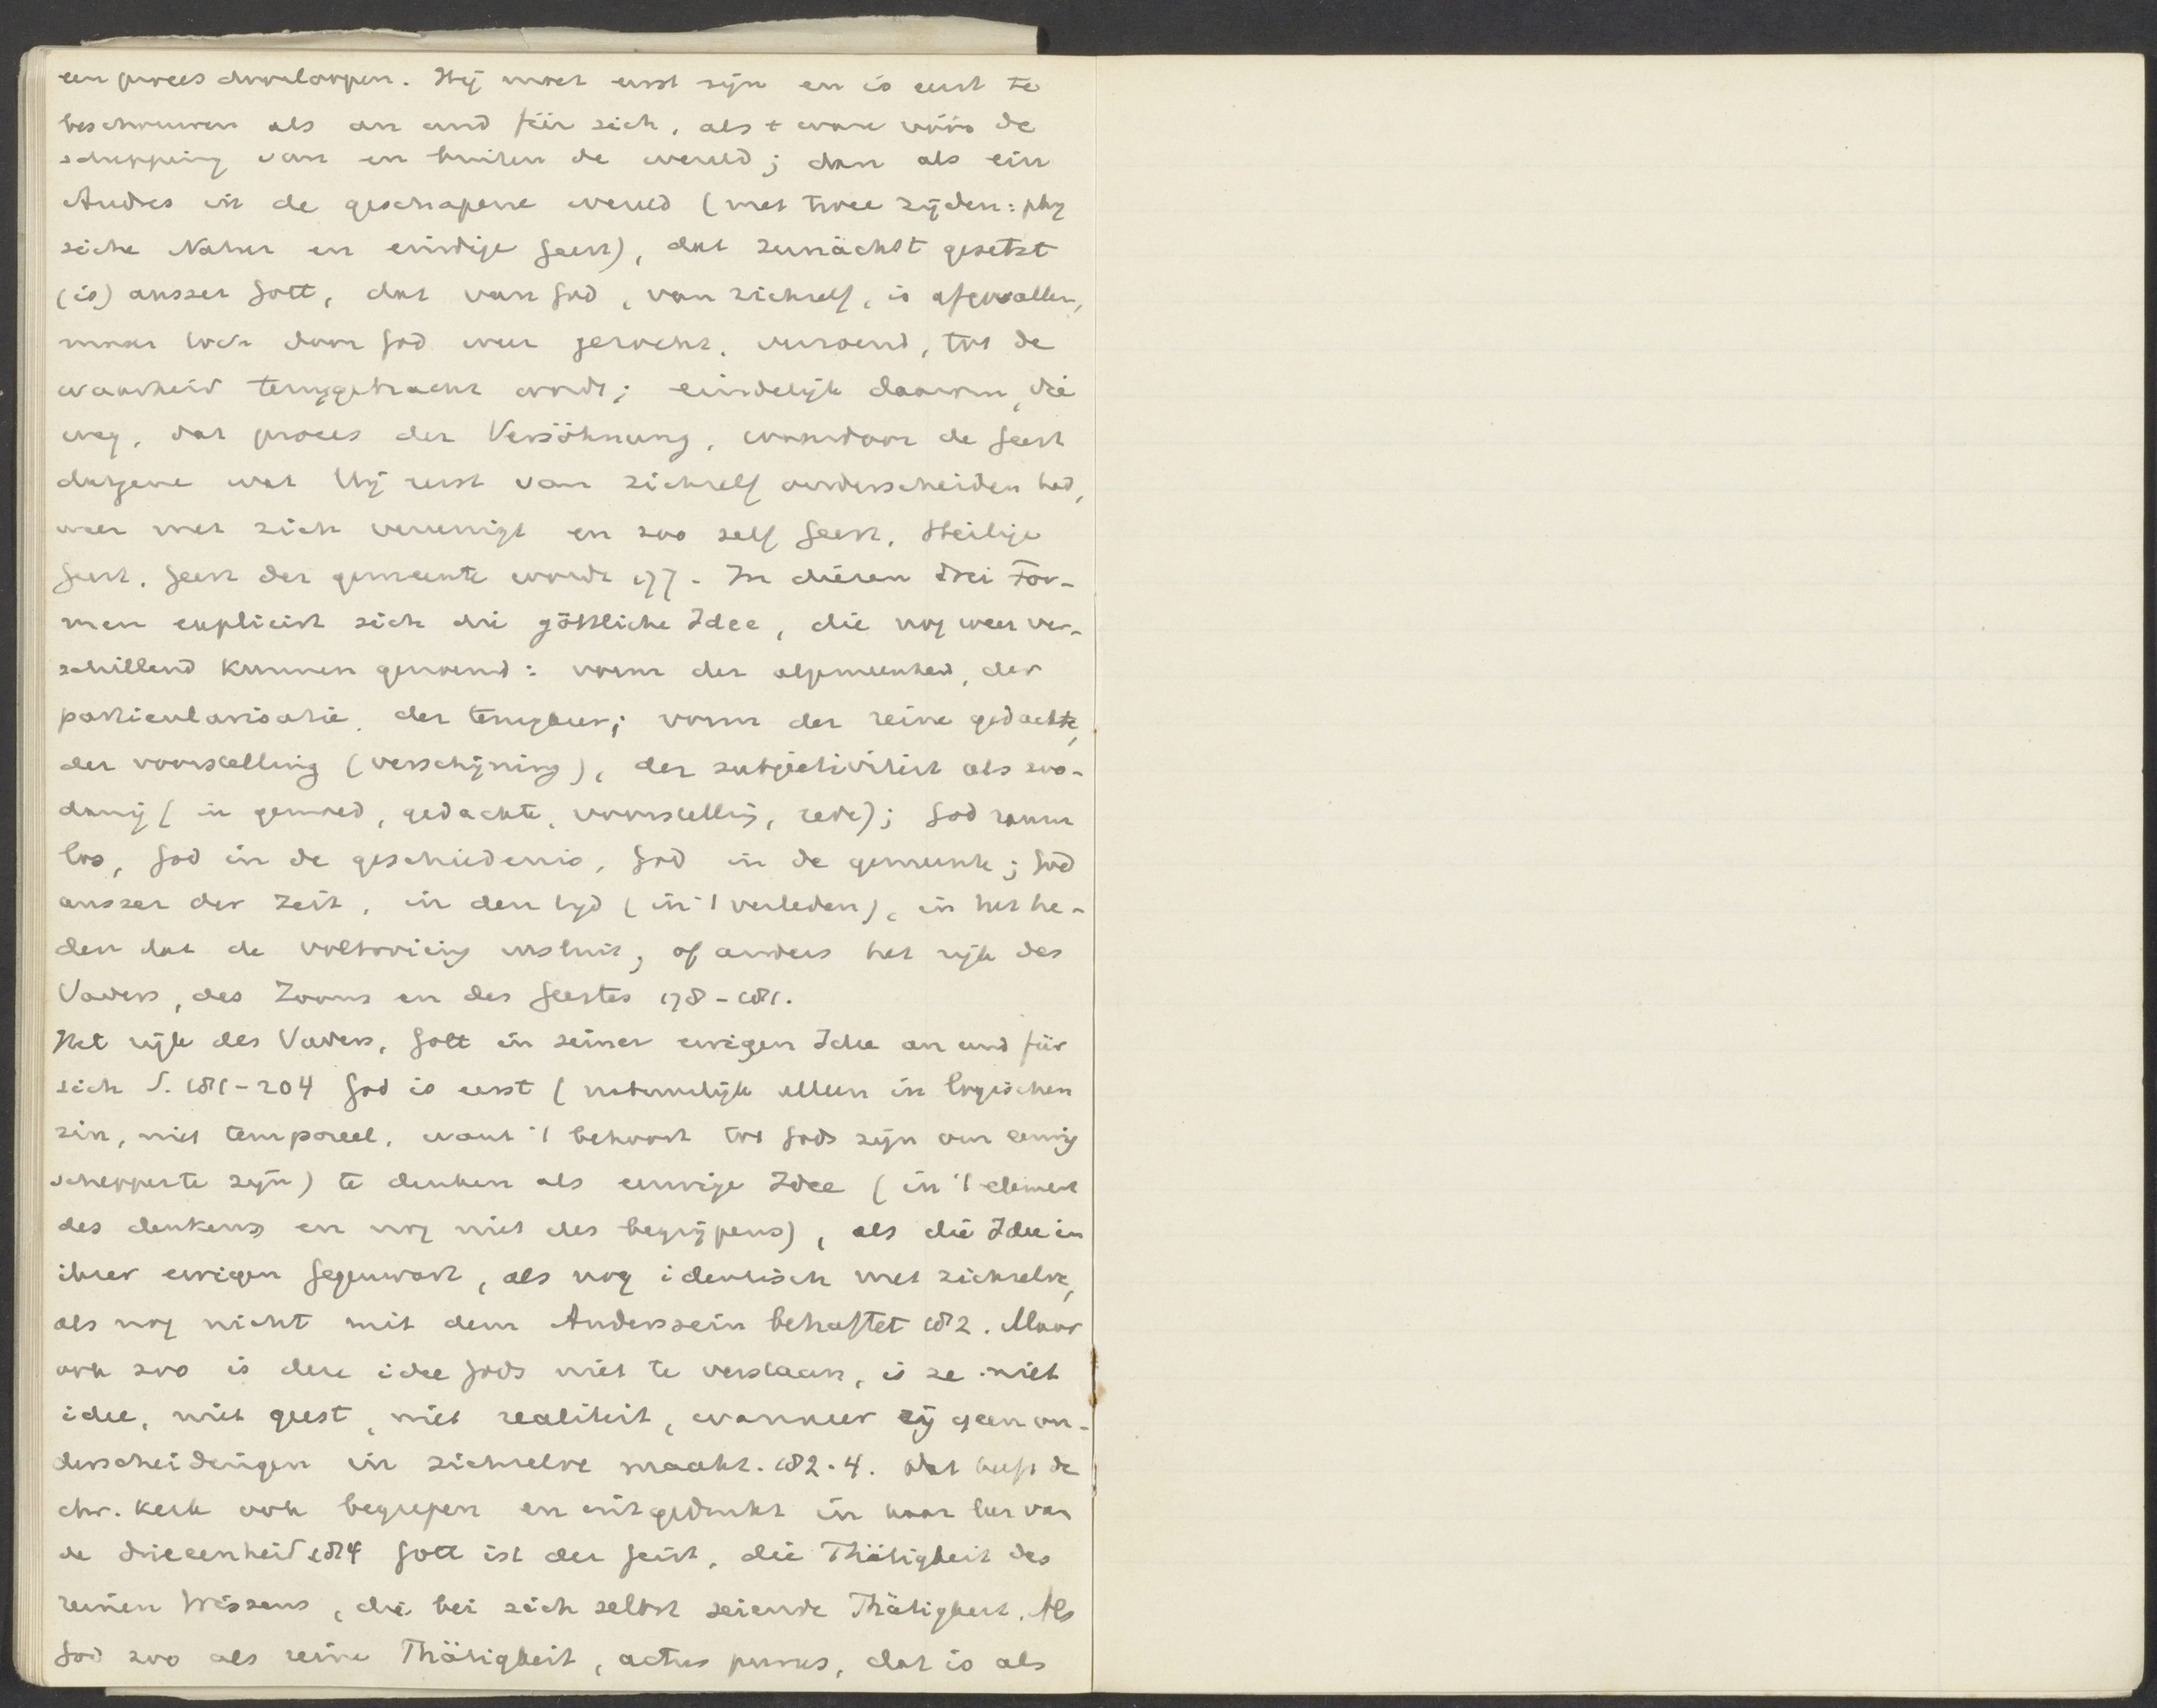 een proces doorloopen. Hij moet eerst zijn en is eerst te
beschouwen als an und für sich, als t ware vóór de
schepping van en buiten de wereld; dan als ein
Andres in de geschapene wereld (met twee zijden: phy
sische Natur en eindige Geest), dat zunächst gesetzt
(is) ausser Gott, dat van God, van zichzelf, is afgevallen,
maar toch door God weer gezocht, verzoend, tot de
waarheid teruggebracht wordt; eindelijk daarom, die
weg, dat proces der Versöhnung, waardoor de Geest
datgene wat Hij eerst van zichzelf onderscheiden had,
weer met zich vereenigt en zoo zelf Geest, Heilige
Geest, Geest der gemeente wordt 177. In diesen drei For-
men explicirt sich die göttliche Idee, die nog weer ver-
schillend kunnen genoemd: vorm der algemeenheid, der
particularisatie, der terugkeer; vorm der reine gedachte,
der voorstelling (verschijning), der subjectiviteit als zoo-
danig (in gemoed, gedachte, voorstelling, rede); God ruim
loos, God in de geschiedenis, God in de gemeente; God
ausser der Zeit, in den tijd (in 't verleden), in het he-
den dat de voltooiing insluit, of anders het rijk des
Vaders, des Zoons en des Geestes 178-181.
Het rijk des Vaders, Gott in seiner ewigen Idee an und für
sich S. 181-204 God is eerst (natuurlijk alleen in logischen
zin, niet temporeel, want 't behoort tot Gods zijn om eeuwig
schepper te zijn) te denken als eeuwige Idee (in 't element
des denkens en nog niet des begrijpens), als die Idee in
ihrer ewigen Gegenwart, als nog identisch met zichzelve,
als nog nicht mit dem Anderssein behaftet 182. Maar
ook zoo is deze idee Gods niet te verstaan, is ze niet
idee, niet geest, niet realiteit, wanneer zij geen on-
derscheidingen in zichzelve maakt. 182.4. Dat heeft de
chr. kerk ook begrepen en uitgedrukt in haar leer van
de drieeenheid 184 Gott ist der Geist, die Thätigkeit des
reinen Wissens, die bei sich selbst seiende Thätigkeit. Als
God zoo als reine Thätigkeit, actus purus, dat is als